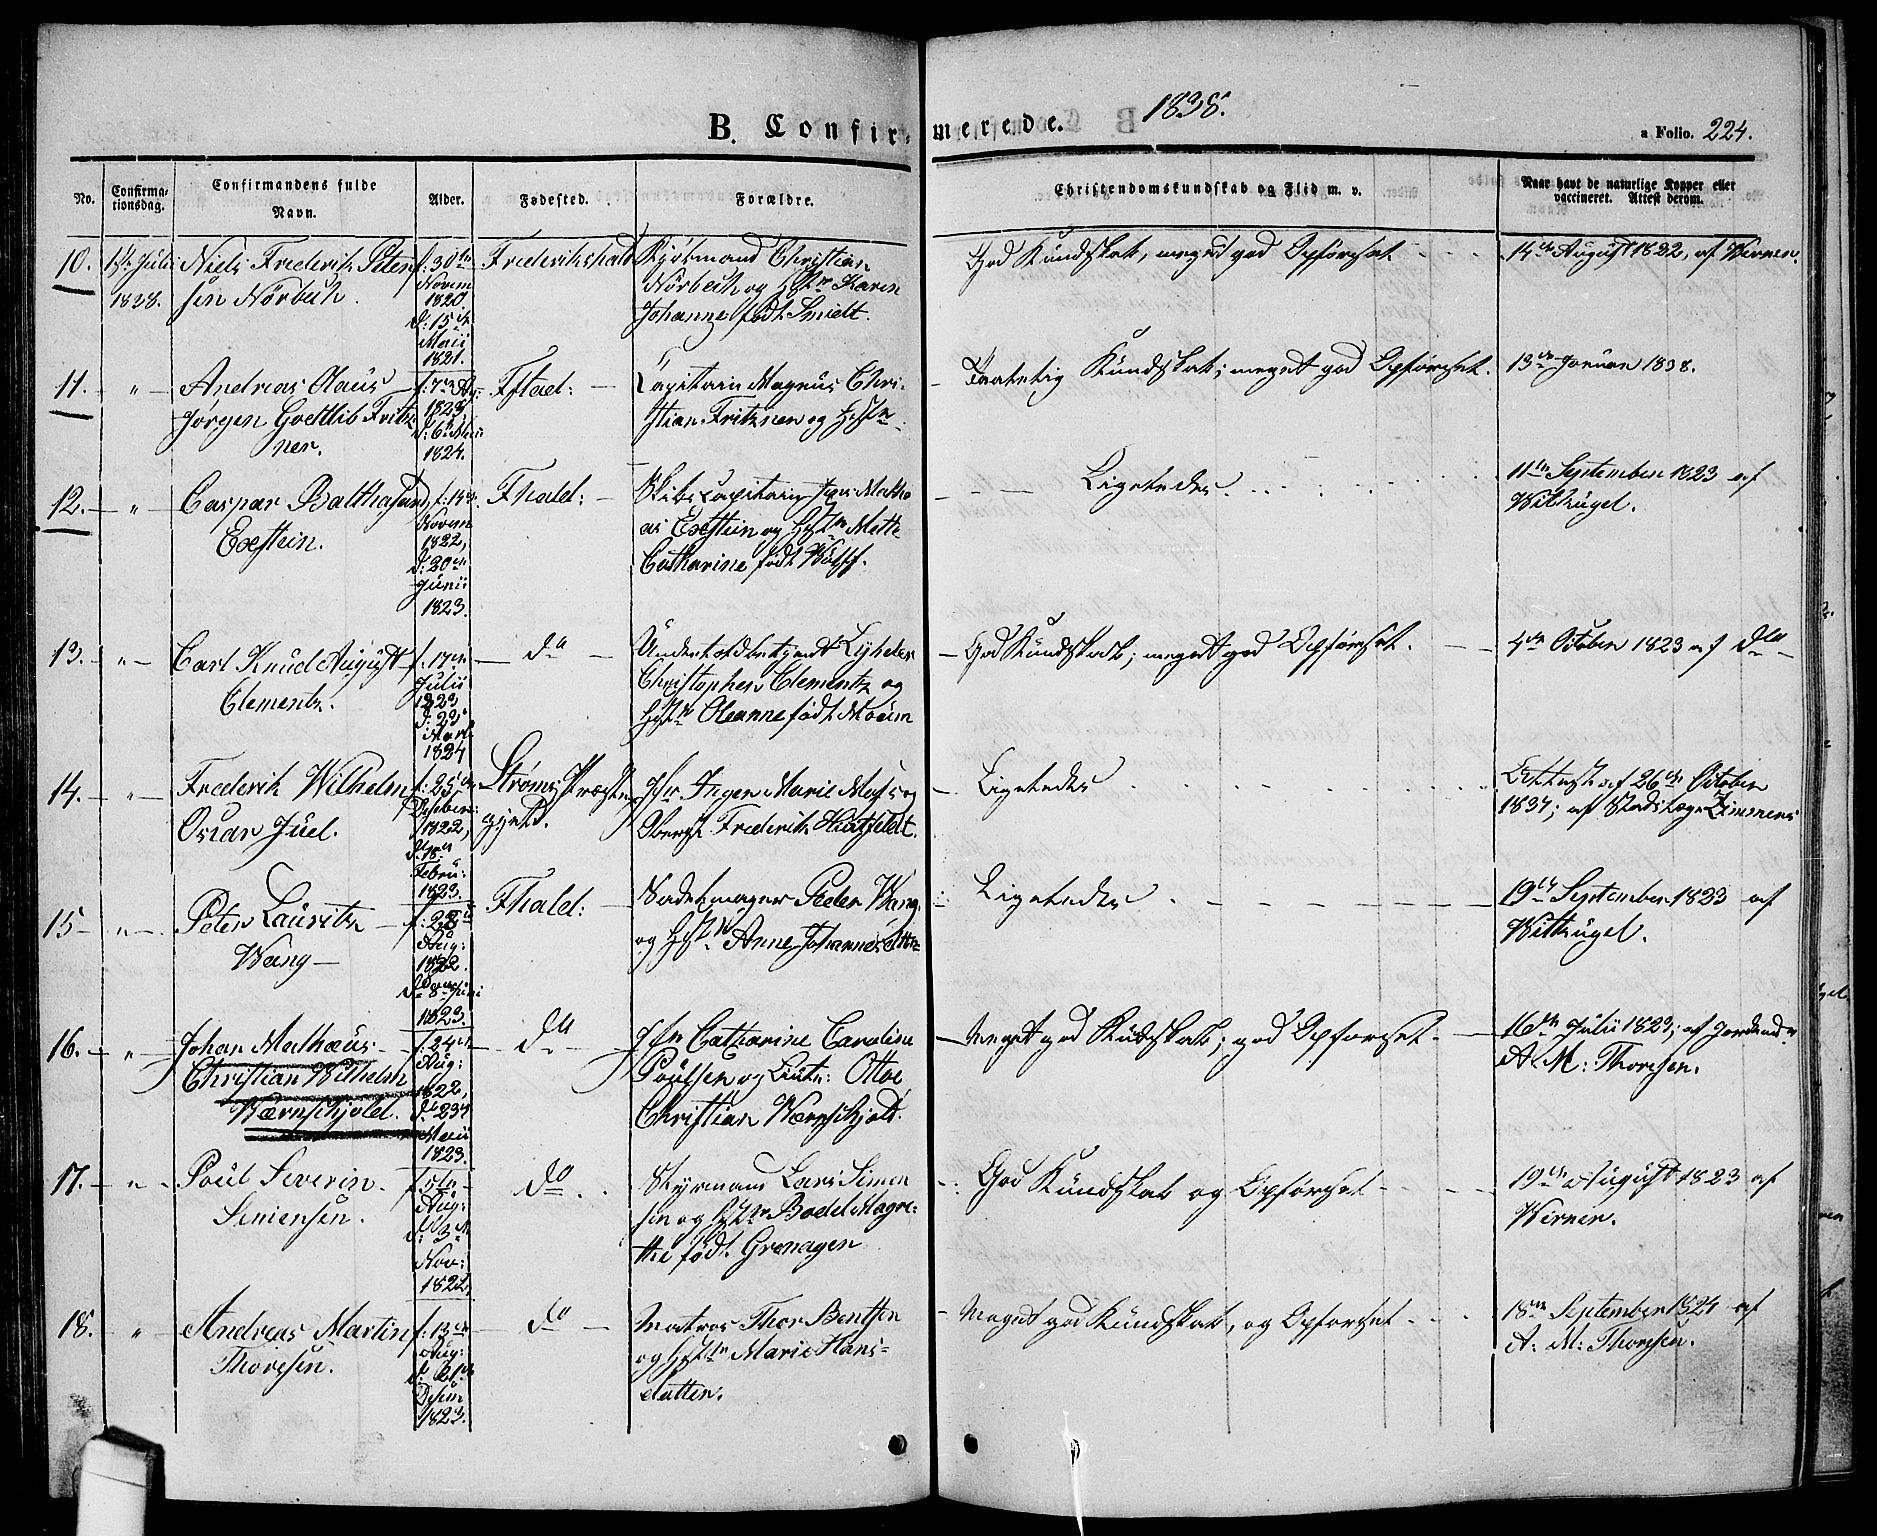 1838.
B. Confirmerede.
a Folio. 224.
No.
Confirmationsdag.
Confirmandens fulde Navn.
Alder.
Fødested.
Forældre.
Christendomskundskab og Flid m. v.
Naar havt de naturlige Kopper eller vaccineret. Attest derom.
10.
Juli
1838.
Niels Frederik Peter
sen Nörbech.
f: 30te
Novem
1820
d: 15de
Maii
1821.
Frederikshald
Kjøbmand Christian
Nörbech og Hstr Karen
Johanne født Smidt.
God Kundskab, meget god Opførsel
14de August 1822, af Werner.
11.
"
Andreas Olaus
Jørgen Gottlib Fritz
ner.
1823
d: 6te Maii
1824.
Fstad:
Capitain Magnus Chri-
stian Fritzner og Hstr
Kundskab; meget god Opførsel.
13de Januar 1838.
12.
"
Caspar Balthasar
Exstein.
Novem
1822,
d: 20de
Junii
1823.
Fhald:
Skibscapitain
as Exstein og Hstr Mette
Catharine født Wolff.
Ligeledes
11te September 1823 af
Wittrügel.
13.
"
Carl Knud August
Clementz.
f. 17de
Julii
1823
d: 23
Marts
1824
do
Christopher Clementz og
Hstr Oleanne født Moüm
God Kundskab; meget god Opførsel.
4de October 1823 af do
14.
"
Frederik Wilhelm
Oscar Juel.
f: 25de
1822,
d. 18.
Febru:
1823.
Strøms Præste
gjeld.
Jfr Inger Marie
Oberst Frederik Hirtfeldt.
Ligeledes
Attest af 26de October
1837; af Stadslæge Zimmers
15
"
Peter Lauritz
Wang
Aug:
1822.
d. 8de Juni
1823.
Fhald:
Sadelmager Peder Wang
og Hstr Anne Johanne
Ligeledes
19de September 1823 af
Wittrügel.
16.
"
Johan Mathæus
Christian Wilhelm
Wærnschjold.
f. 24de
Aug:
1822,
d. 23de
Maii
1823.
do
Jfr Catharine Caroline
Poulsen og Lieutn: Otto
Christian Wærnschjold.
Meget god Kundskab; god Opførsel.
16de Julii 1823; af Jordemdr
A. M: Thoresen.
17.
"
Poul Severin
Simensen.
Aug:
Nov:
1822,
do
Styrmand Lars Simen
sen og Hstr Bodel Magre-
the født Grönager
God Kundskab og Opførsel
19de August 1823 af
Werner.
18.
"
Andreas Martin
Thoresen.
f. 13de
Aug:
1823.
do
Matros Thor Bentsen
og Hstr Marie Hans-
datter.
Meget god Kundskab, og Opførsel
18de September 1824 af
A: M: Thoresen.